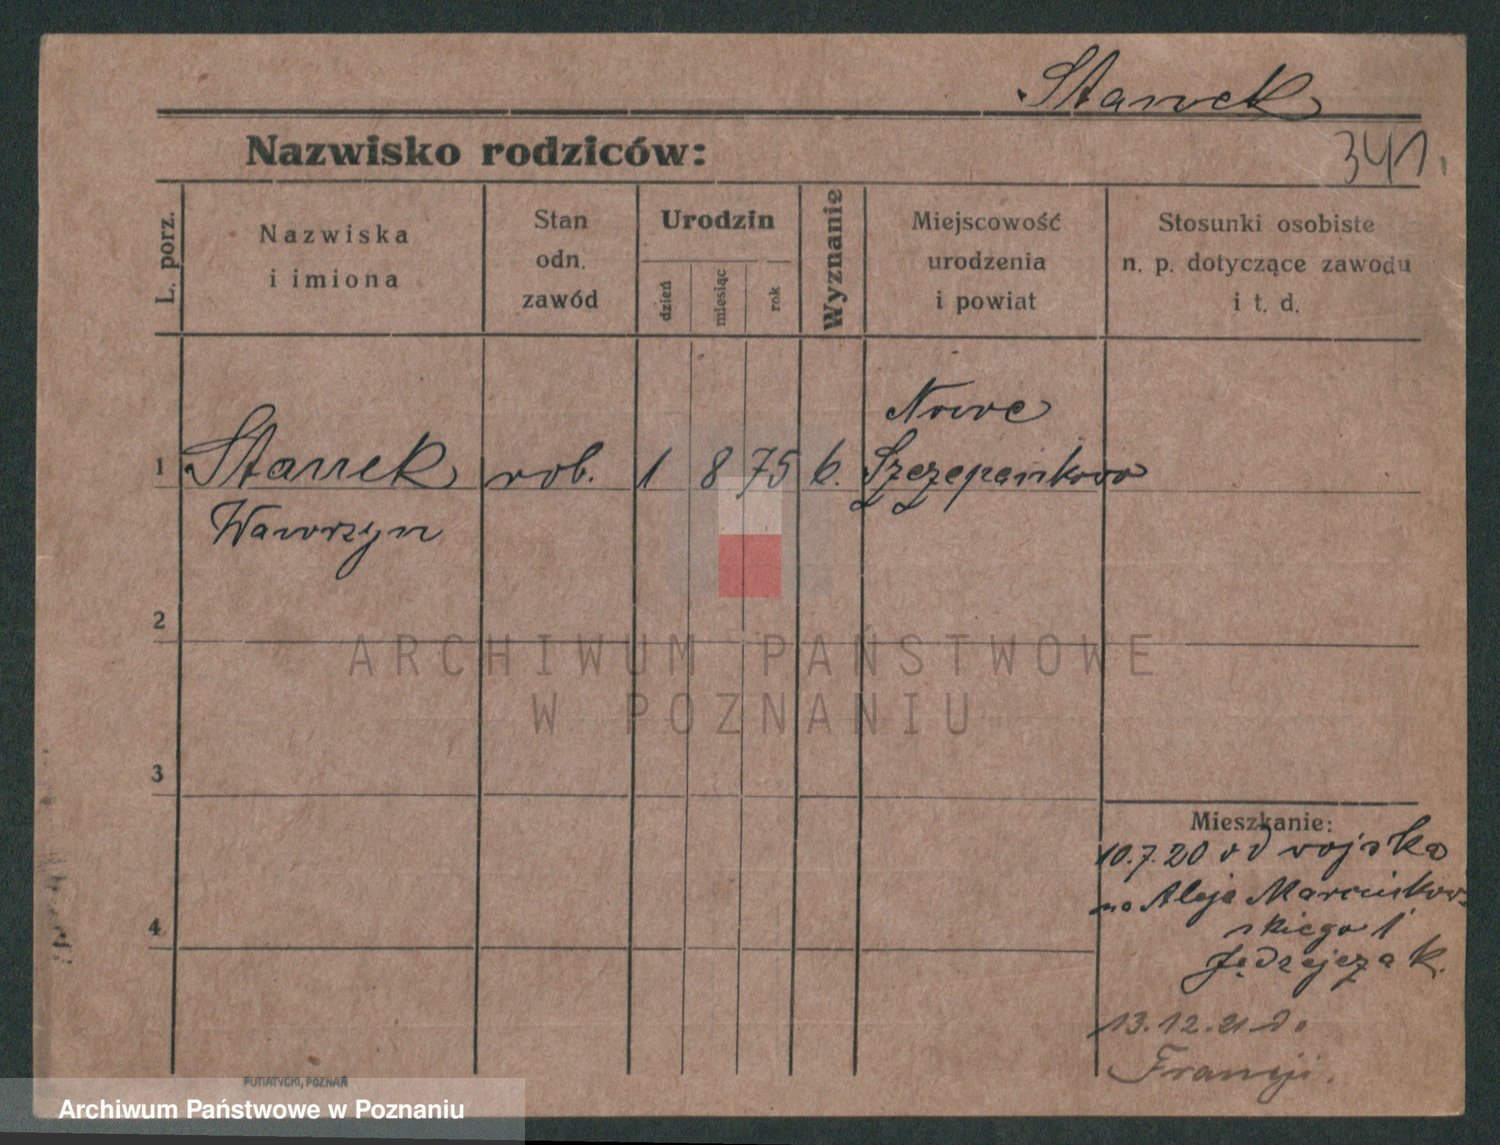 Stanek
341.
Nazwisko rodziców:
L. porz.
Nazwiska
i imiona
Stan
odn.
zawód
Urodzin
dzień
miesiąc
rok
Wyznanie
Miejscowość
urodzenia
i powiat
Stosunki osobiste
n. p. dotyczące zawodu
i t. d.
1
Stanek
Wawrzyn
rob.
1
8
75
k.
Nowe
Szczepankowo
2
ARCHIWUM PAŃSTWOWE
W POZNANIU
3
4
Mieszkanie:
10.7.20 od wojska
na Aleje Marcinkow-
skiego 1
Jędrzejczak.
13.12.21 do
Francji.
PUTIATYCKI, POZNAŃ
Archiwum Państwowe w Poznaniu